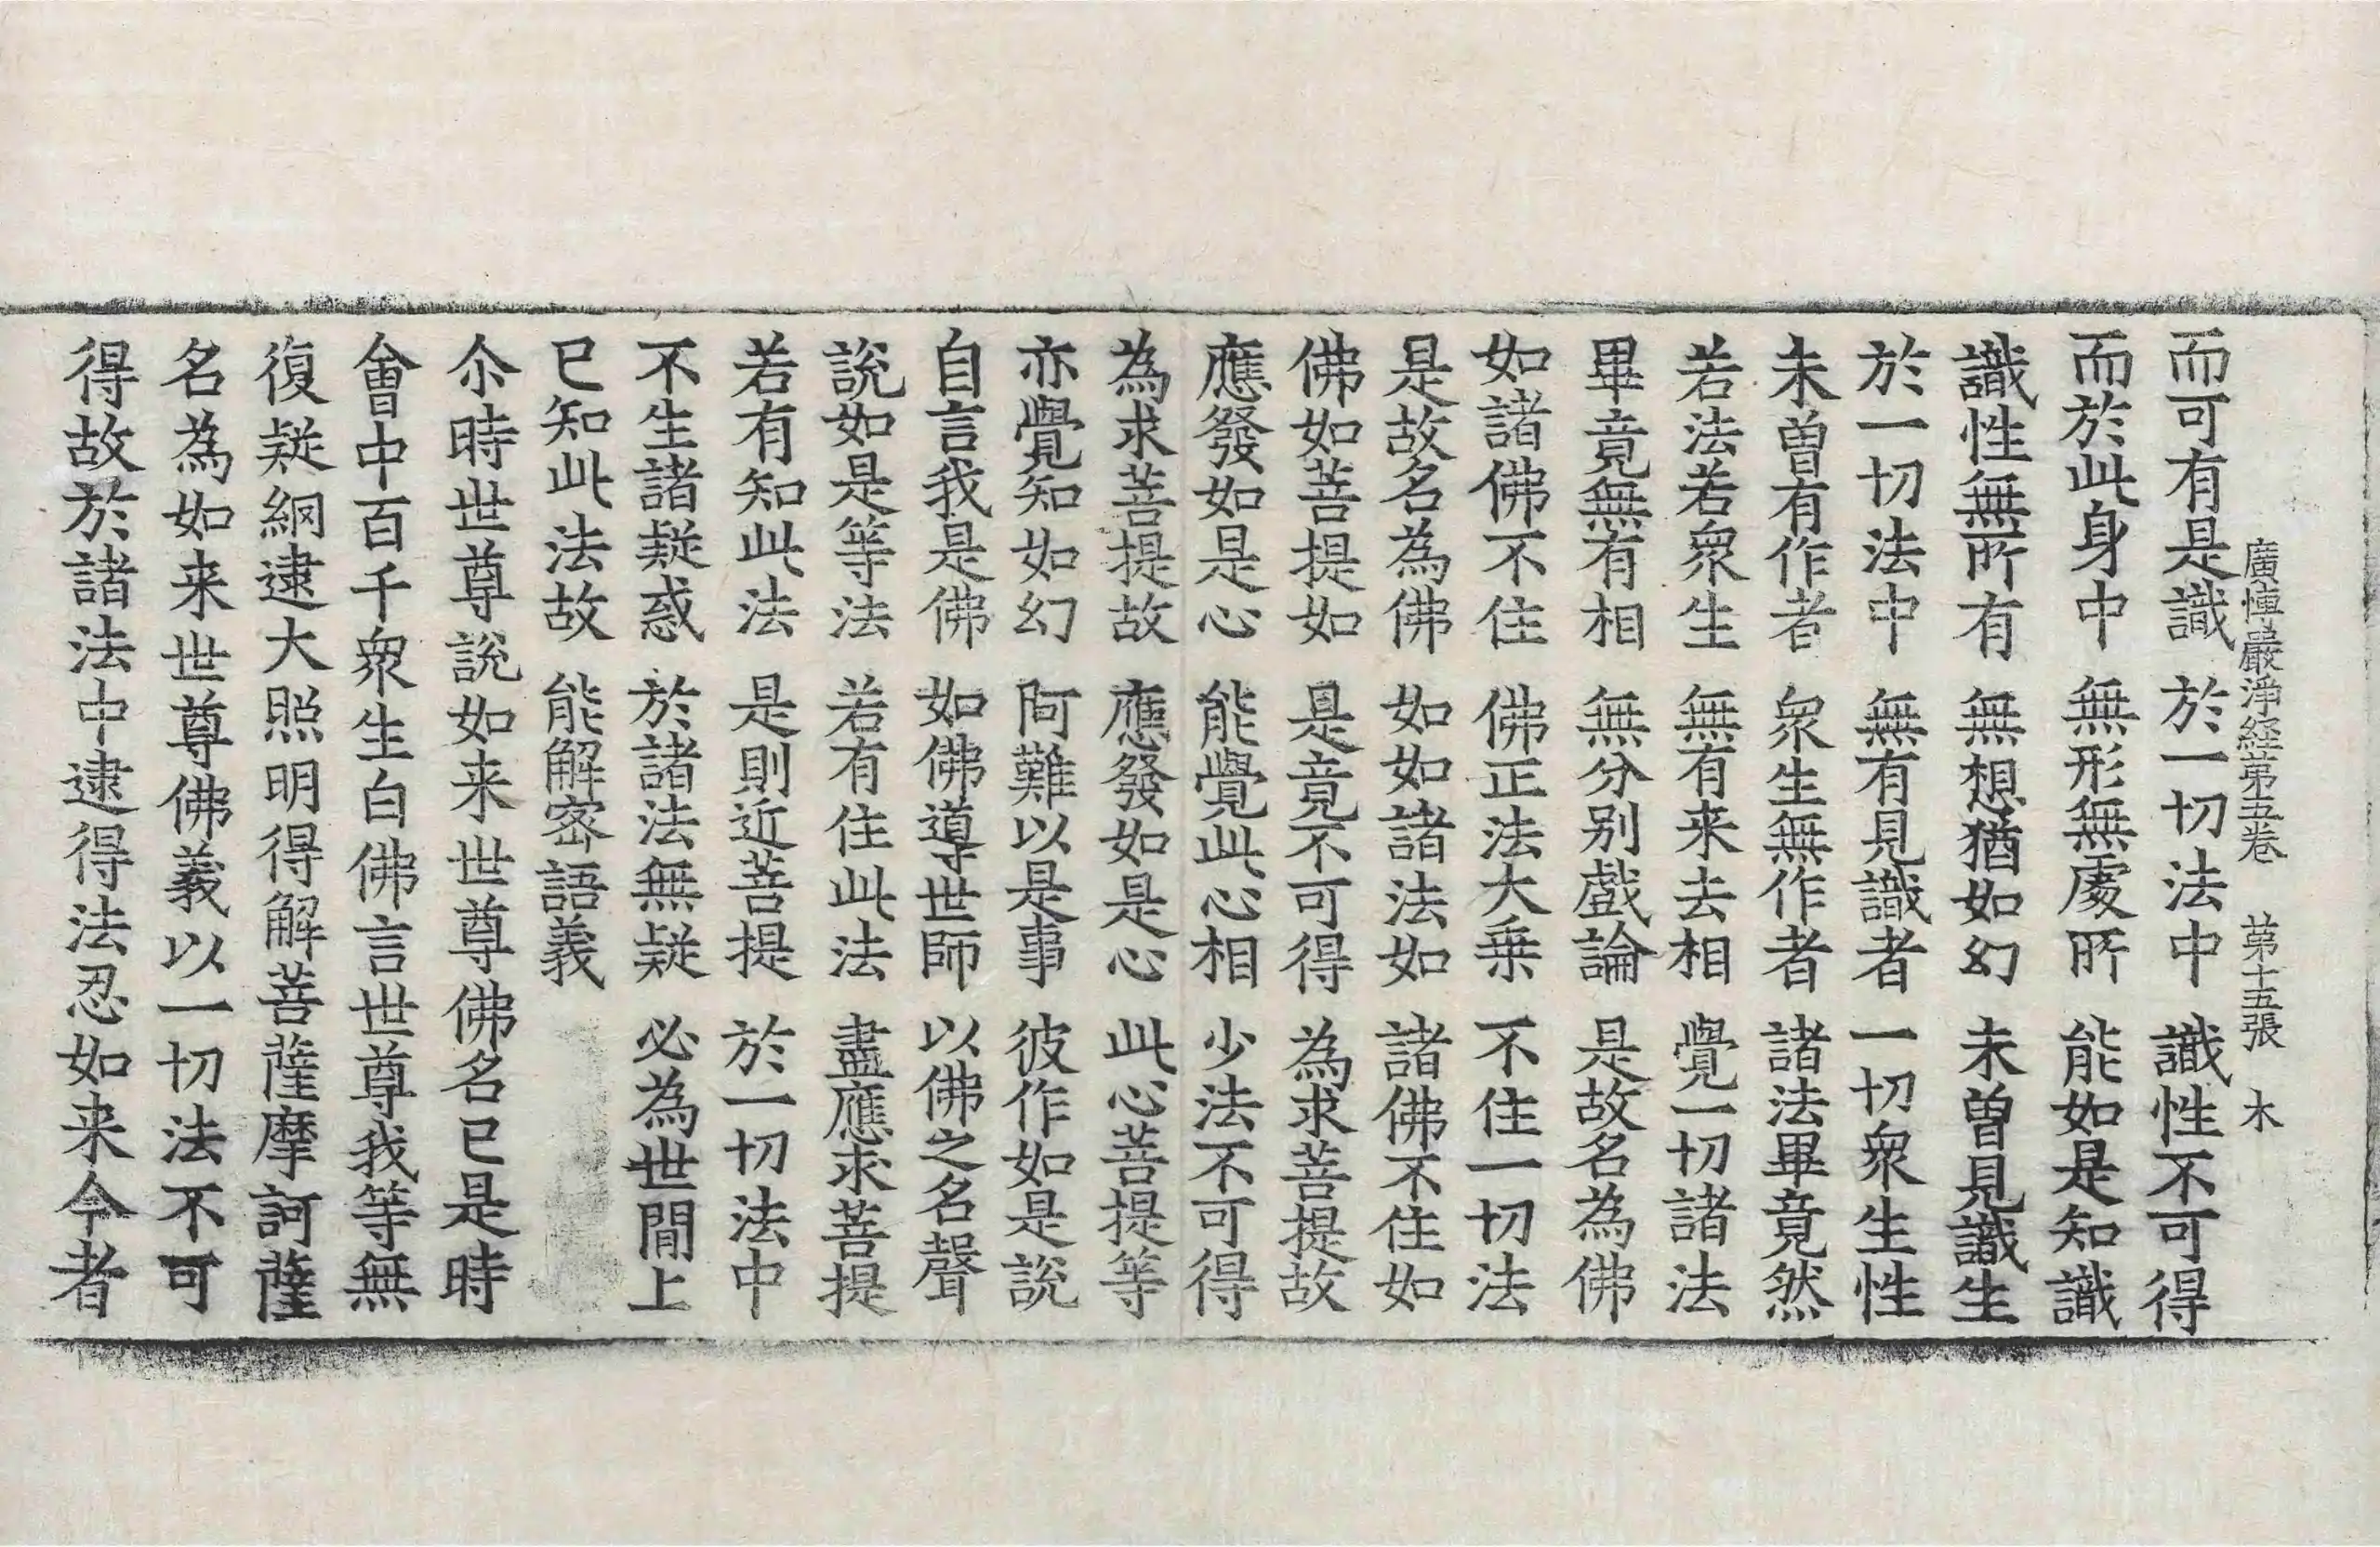 廣博嚴淨經第五卷　第十五張　木
而可有是識　於一切法中　識性不可得
而於此身中　無形無處所　能如是知識
識性無所有　無想猶如幻　未曾見識生
於一切法中　無有見識者　一切衆生性
未曾有作者　衆生無作者　諸法畢竟然
若法若衆生　無有来去相　覺一切諸法
畢竟無有相　無分别戲論　是故名為佛
如諸佛不住　佛正法大乗　不住一切法
是故名為佛　如如諸法如　諸佛不住如
佛如菩提如　是竟不可得　為求菩提故
應發如是心　能覺此心相　少法不可得
為求菩提故　應發如是心　此心菩提等
亦覺知如幻　阿難以是事　彼作如是説
自言我是佛　如佛導世師　以佛之名聲
説如是等法　若有住此法　盡應求菩提
若有知此法　是則近菩提　於一切法中
不生諸疑惑　於諸法無疑　必為世間上
已知此法故　能解密語義
尒時世尊説如来世尊佛名已是時
會中百千衆生白佛言世尊我等無
復疑網逮大照明得解菩薩摩訶薩
名為如来世尊佛義以一切法不可
得故於諸法中逮得法忍如来今者